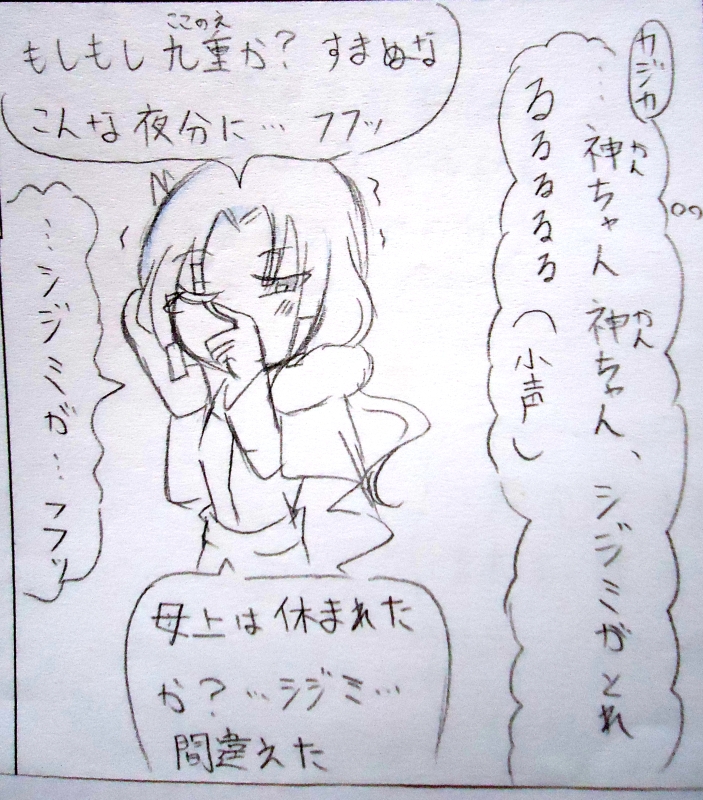 カジカ
…神ちゃん 神ちゃん、シジミがとれ
かん
かん
るるるるる(小声)
もしもし九重か? すまぬな
ここのえ
こんな夜分に… フフッ
…シジミが… フフッ
母上は休まれた
か?…シジミ…
間違えた